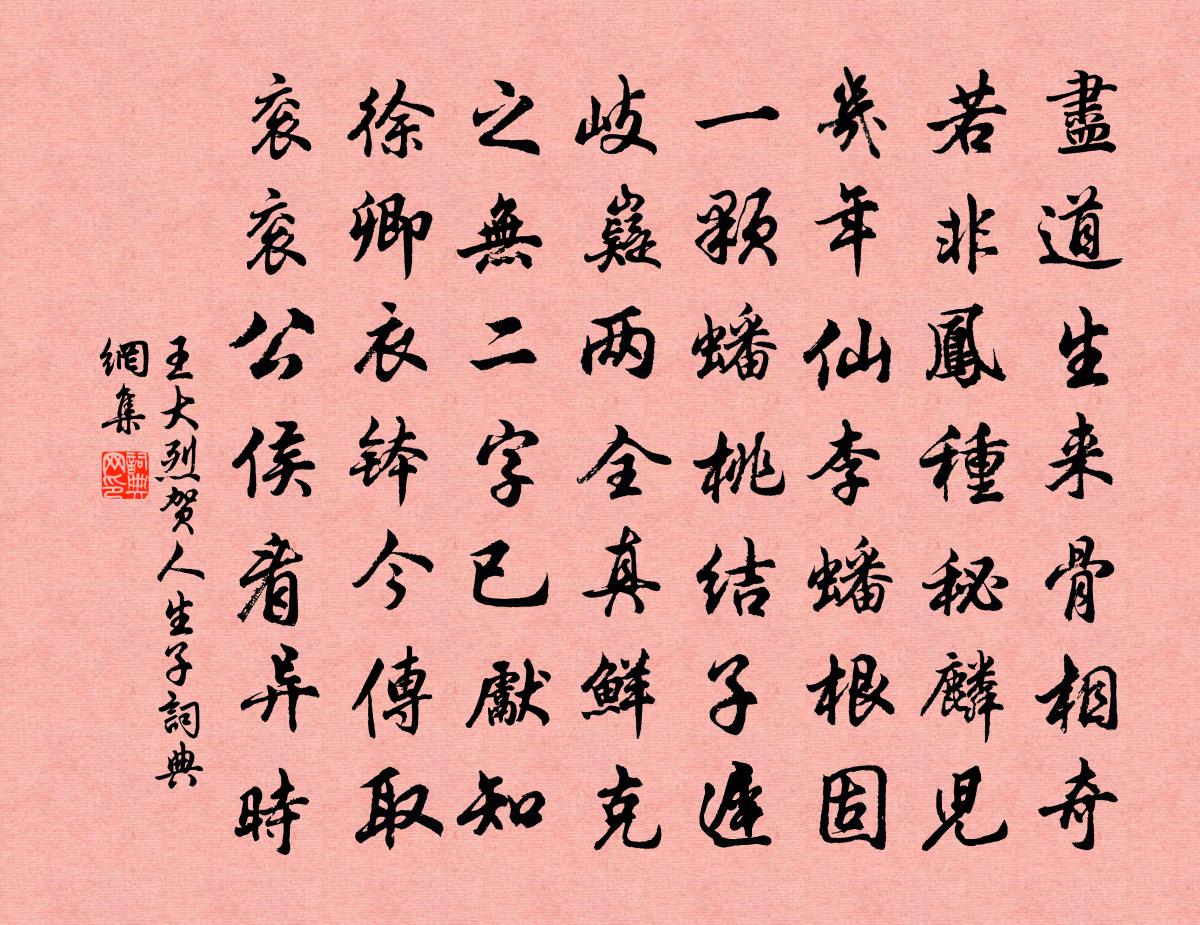 盡道生来骨相奇
若非鳳種秘麟児
幾年仙李蟠根固
一顆蟠桃結子遲
岐嶷两全真鮮克
之無二字已獻知
徐卿衣鉢今傳取
衮衮公侯看异時
王大烈贺人生子詞典
網集
詞典网印